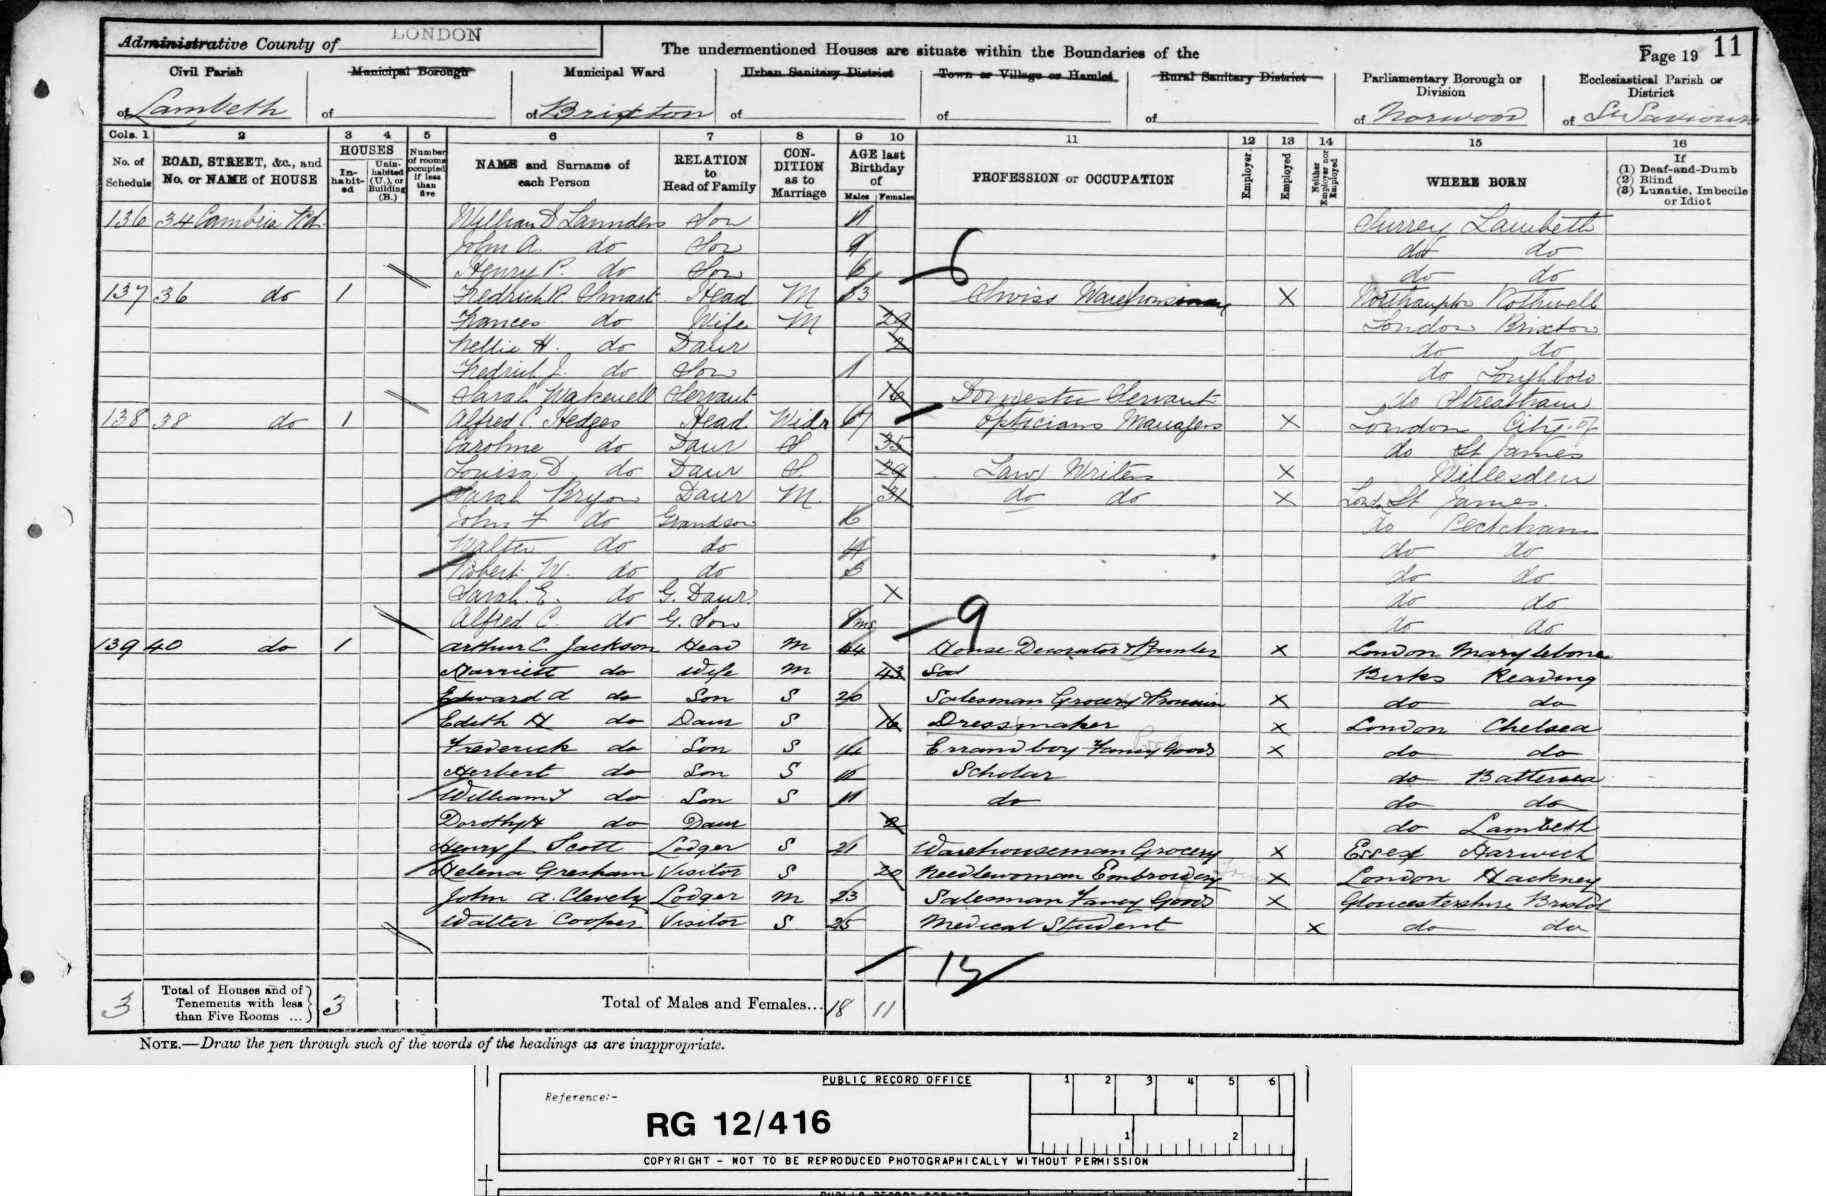 Administrative County of LONDON
The undermentioned Houses are situate within the Boundaries of the
Page 19 11
Civil Parish of Lambeth
Municipal Borough of
Municipal Ward of Brixton
Urban Sanitary District of
Town or Village or Hamlet of
Rural Sanitary District of
Parliamentary Borough or Division of Norwood
Ecclesiastical Parish or District of St Saviours
Cols. 1 2 3 4 5 6 7 8 9 10 11 12 13 14 15 16
No. of Schedule
ROAD, STREET, &c., and No. or NAME of HOUSE
HOUSES
In-habit-ed
Unin-habited (U.), or Building (B.)
Number of rooms occupied if less than five
NAME and Surname of each Person
RELATION to Head of Family
CON-DITION as to Marriage
AGE last Birthday of
Males Females
PROFESSION or OCCUPATION
Employer
Employed
Neither Employer nor Employed
WHERE BORN
If
(1) Deaf-and-Dumb
(2) Blind
(3) Lunatic, Imbecile or Idiot
136 34 Cambria Rd William D Saunders Son 11 Surrey Lambeth
John A. do Son 9 do do
Henry P. do Son 6 do do
6
137 36 do 1 Fredrick P. Smart Head M 33 Swiss Warehouseman X Northampton Rothwell
Frances do Wife M 29 London Brixton
Nellie H. do Daur 2 do do
Fredrick J. do Son 1 do Loughboro
Sarah Wakewell Servant 16 Domestic Servant do Streatham
138 38 do 1 Alfred C. Hedges Head Widr 67 Opticians Manager X London City of
Caroline do Daur S 35 do St James
Louisa D. do Daur S 29 Law Writer X Willesden
Sarah Bryon Daur M. 31 do do X Lond. St James.
John F do Grandson 6 do Peckham
Walter do do 4 do do
Robert W. do do 3 do do
Sarah E. do G. Daur. do do
Alfred C. do G. Son ms do do
9
139 40 do 1 Arthur C. Jackson Head M 44 House Decorator & Painter X London Marylebone
Harriett do Wife M 43 Berks Reading
Edward A do Son S 20 Salesman Grocery & Provision X do do
Edith H do Daur S 16 Dressmaker X London Chelsea
Frederick do Son S 14 Errand boy Fancy Goods X do do
Herbert do Son S Scholar do Battersea
William J do Son S 11 do do do
Dorothy H do Daur 2 do Lambeth
Henry J Scott Lodger S 21 Warehouseman Grocery X Essex Harwich
Helena Gresham Visitor S 20 Needlewoman Embroidery X London Hackney
John A. Clevely Lodger M 23 Salesman Fancy Goods X Gloucestershire Bristol
Walter Cooper Visitor S 25 Medical Student X do do
3 Total of Houses and of Tenements with less than Five Rooms ... 3
Total of Males and Females... 18 11
NOTE.—Draw the pen through such of the words of the headings as are inappropriate.
PUBLIC RECORD OFFICE
Reference:-
RG 12/416
1 2 3 4 5 6
1 2
COPYRIGHT - NOT TO BE REPRODUCED PHOTOGRAPHICALLY WITHOUT PERMISSION